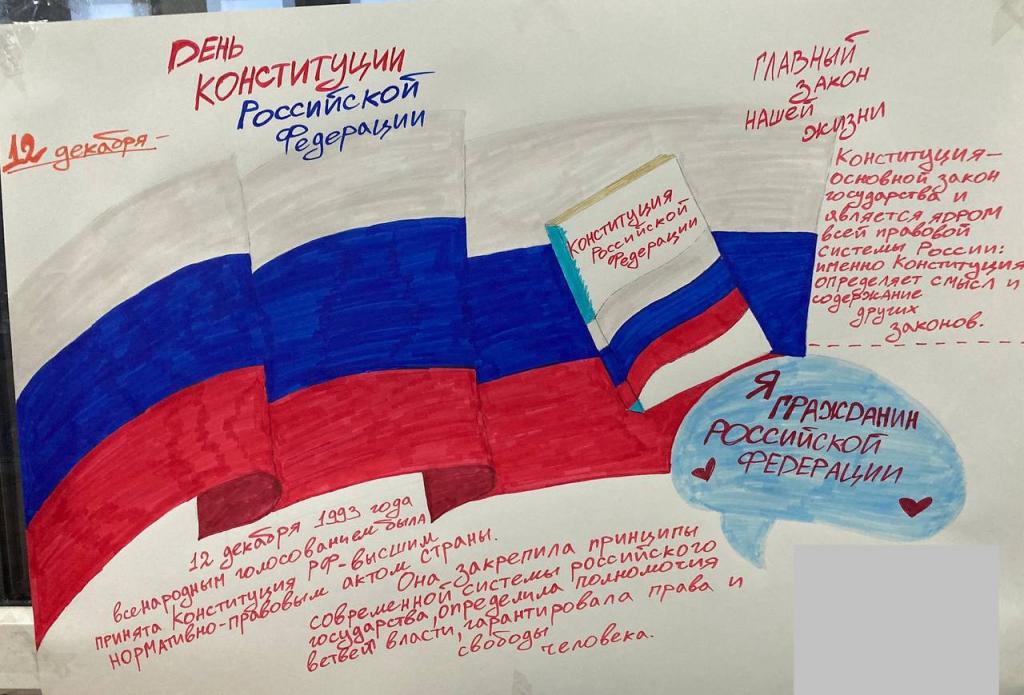 12 декабря -
День
Конституции
Российской
Федерации
Главный
закон
нашей
жизни
Конституция-
основной закон
государства и
является ядром
всей правовой
системы России:
именно Конституция
определяет смысл и
содержание
других
законов.
Конституция
Российской
Федерации
Я
гражданин
Российской
Федерации
12 декабря 1993 года
всенародным голосованием была
принята Конституция РФ-высшим
нормативно-правовым актом страны.
Она закрепила принципы
современной системы российского
государства, определила полномочия
ветвей власти, гарантировала права и
свободы
человека.